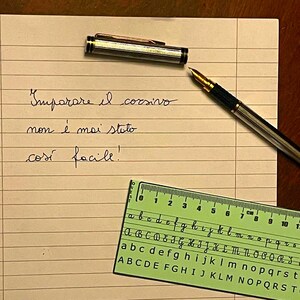 Imparare il corsivo
non è mai stato
così facile!
0 1 2 3 4 5 6 7 8 9 10 11 12
a b c d e f g h i j k l m n o p q r s
A B C D E F G H I J K L M N O P Q R S
a b c d e f g h i j k l m n o p q r s t
A B C D E F G H I J K L M N O P Q R S T